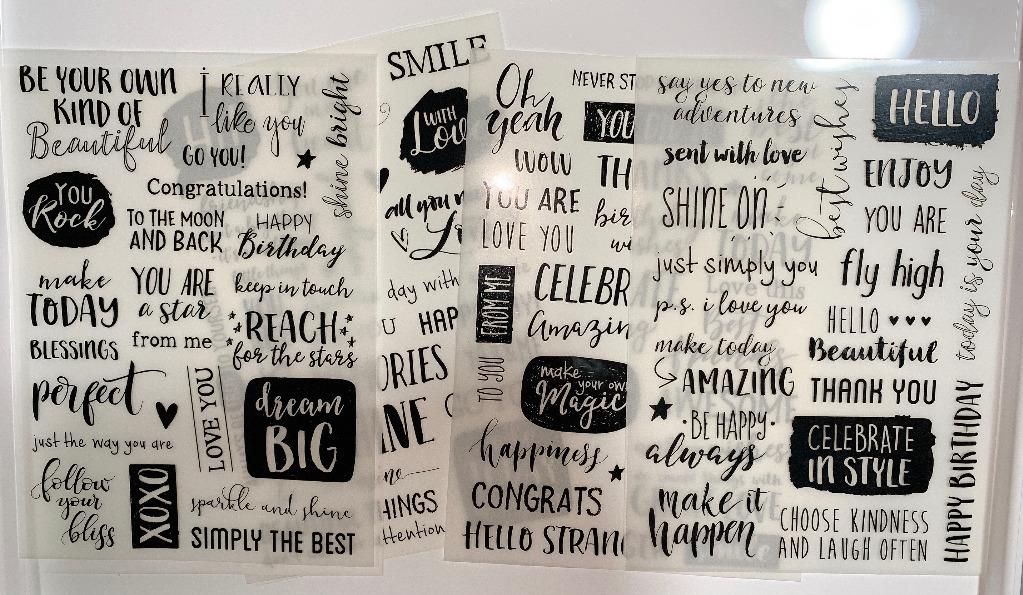 BE YOUR OWN
KIND OF
Beautiful
I REALLY
like you
GO YOU!
shine bright
YOU
Rock
Congratulations!
TO THE MOON
AND BACK
HAPPY
Birthday
make
TODAY
BLESSINGS
YOU ARE
a star
from me
keep in touch
REACH
for the stars
perfect
just the way you are
LOVE YOU
dream
BIG
follow
your
bliss
XOXO
sparkle and shine
SIMPLY THE BEST
SMILE
WITH
Love
all you
day with
HAP
ORIES
INE
HINGS
ttention
Oh
yeah
NEVER ST
YOU
WOW
TH
YOU ARE
bir
LOVE YOU
wi
FROM ME
CELEBR
Amazin
TO YOU
make
your own
Magic
happiness
CONGRATS
HELLO STRAN
say yes to new
adventures
best wishes
HELLO
sent with love
ENJOY
SHINE ON
YOU ARE
today is your day
just simply you
fly high
p.s. i love you
HELLO ♥♥♥
make today
AMAZING
Beautiful
THANK YOU
·BE HAPPY·
always
CELEBRATE
IN STYLE
make it
happen
CHOOSE KINDNESS
AND LAUGH OFTEN
HAPPY BIRTHDAY